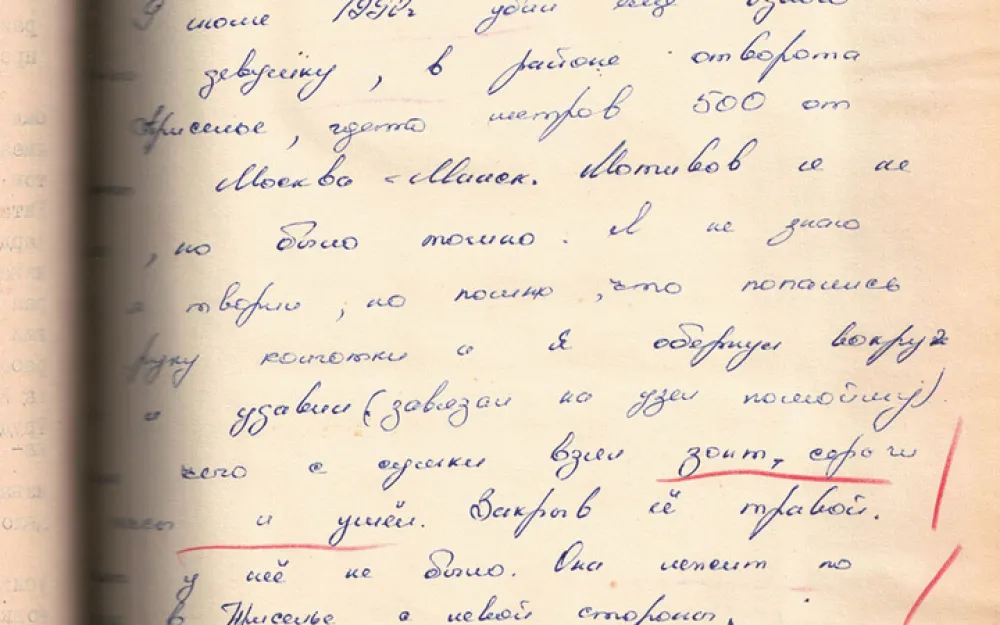 В июне 1992г убил ещё одну
девушку, в районе отворота
Присенье, гдето метров 500 от
Москва-Минск. Мотивов я не
, но было тошно. Я не знаю
я творил, но помню, что попались
руку колготки и я обернул вокруг
и удавил (завязал на узел помойму).
чего с сумки взял зонт, серьги
часы и ушёл. Закрыв её травой.
у неё не было. Она лежит по
в Присенье с левой стороны.